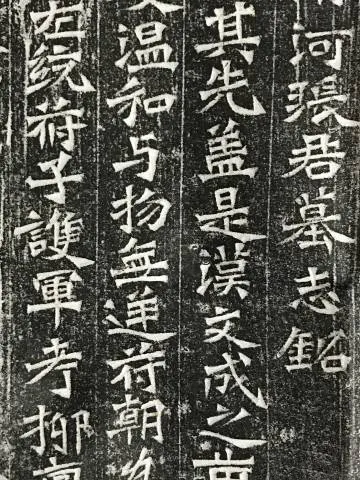 河張君墓志銘
其先蓋是漢文成之
温和与物無迕苻朝
左統苻子護軍考